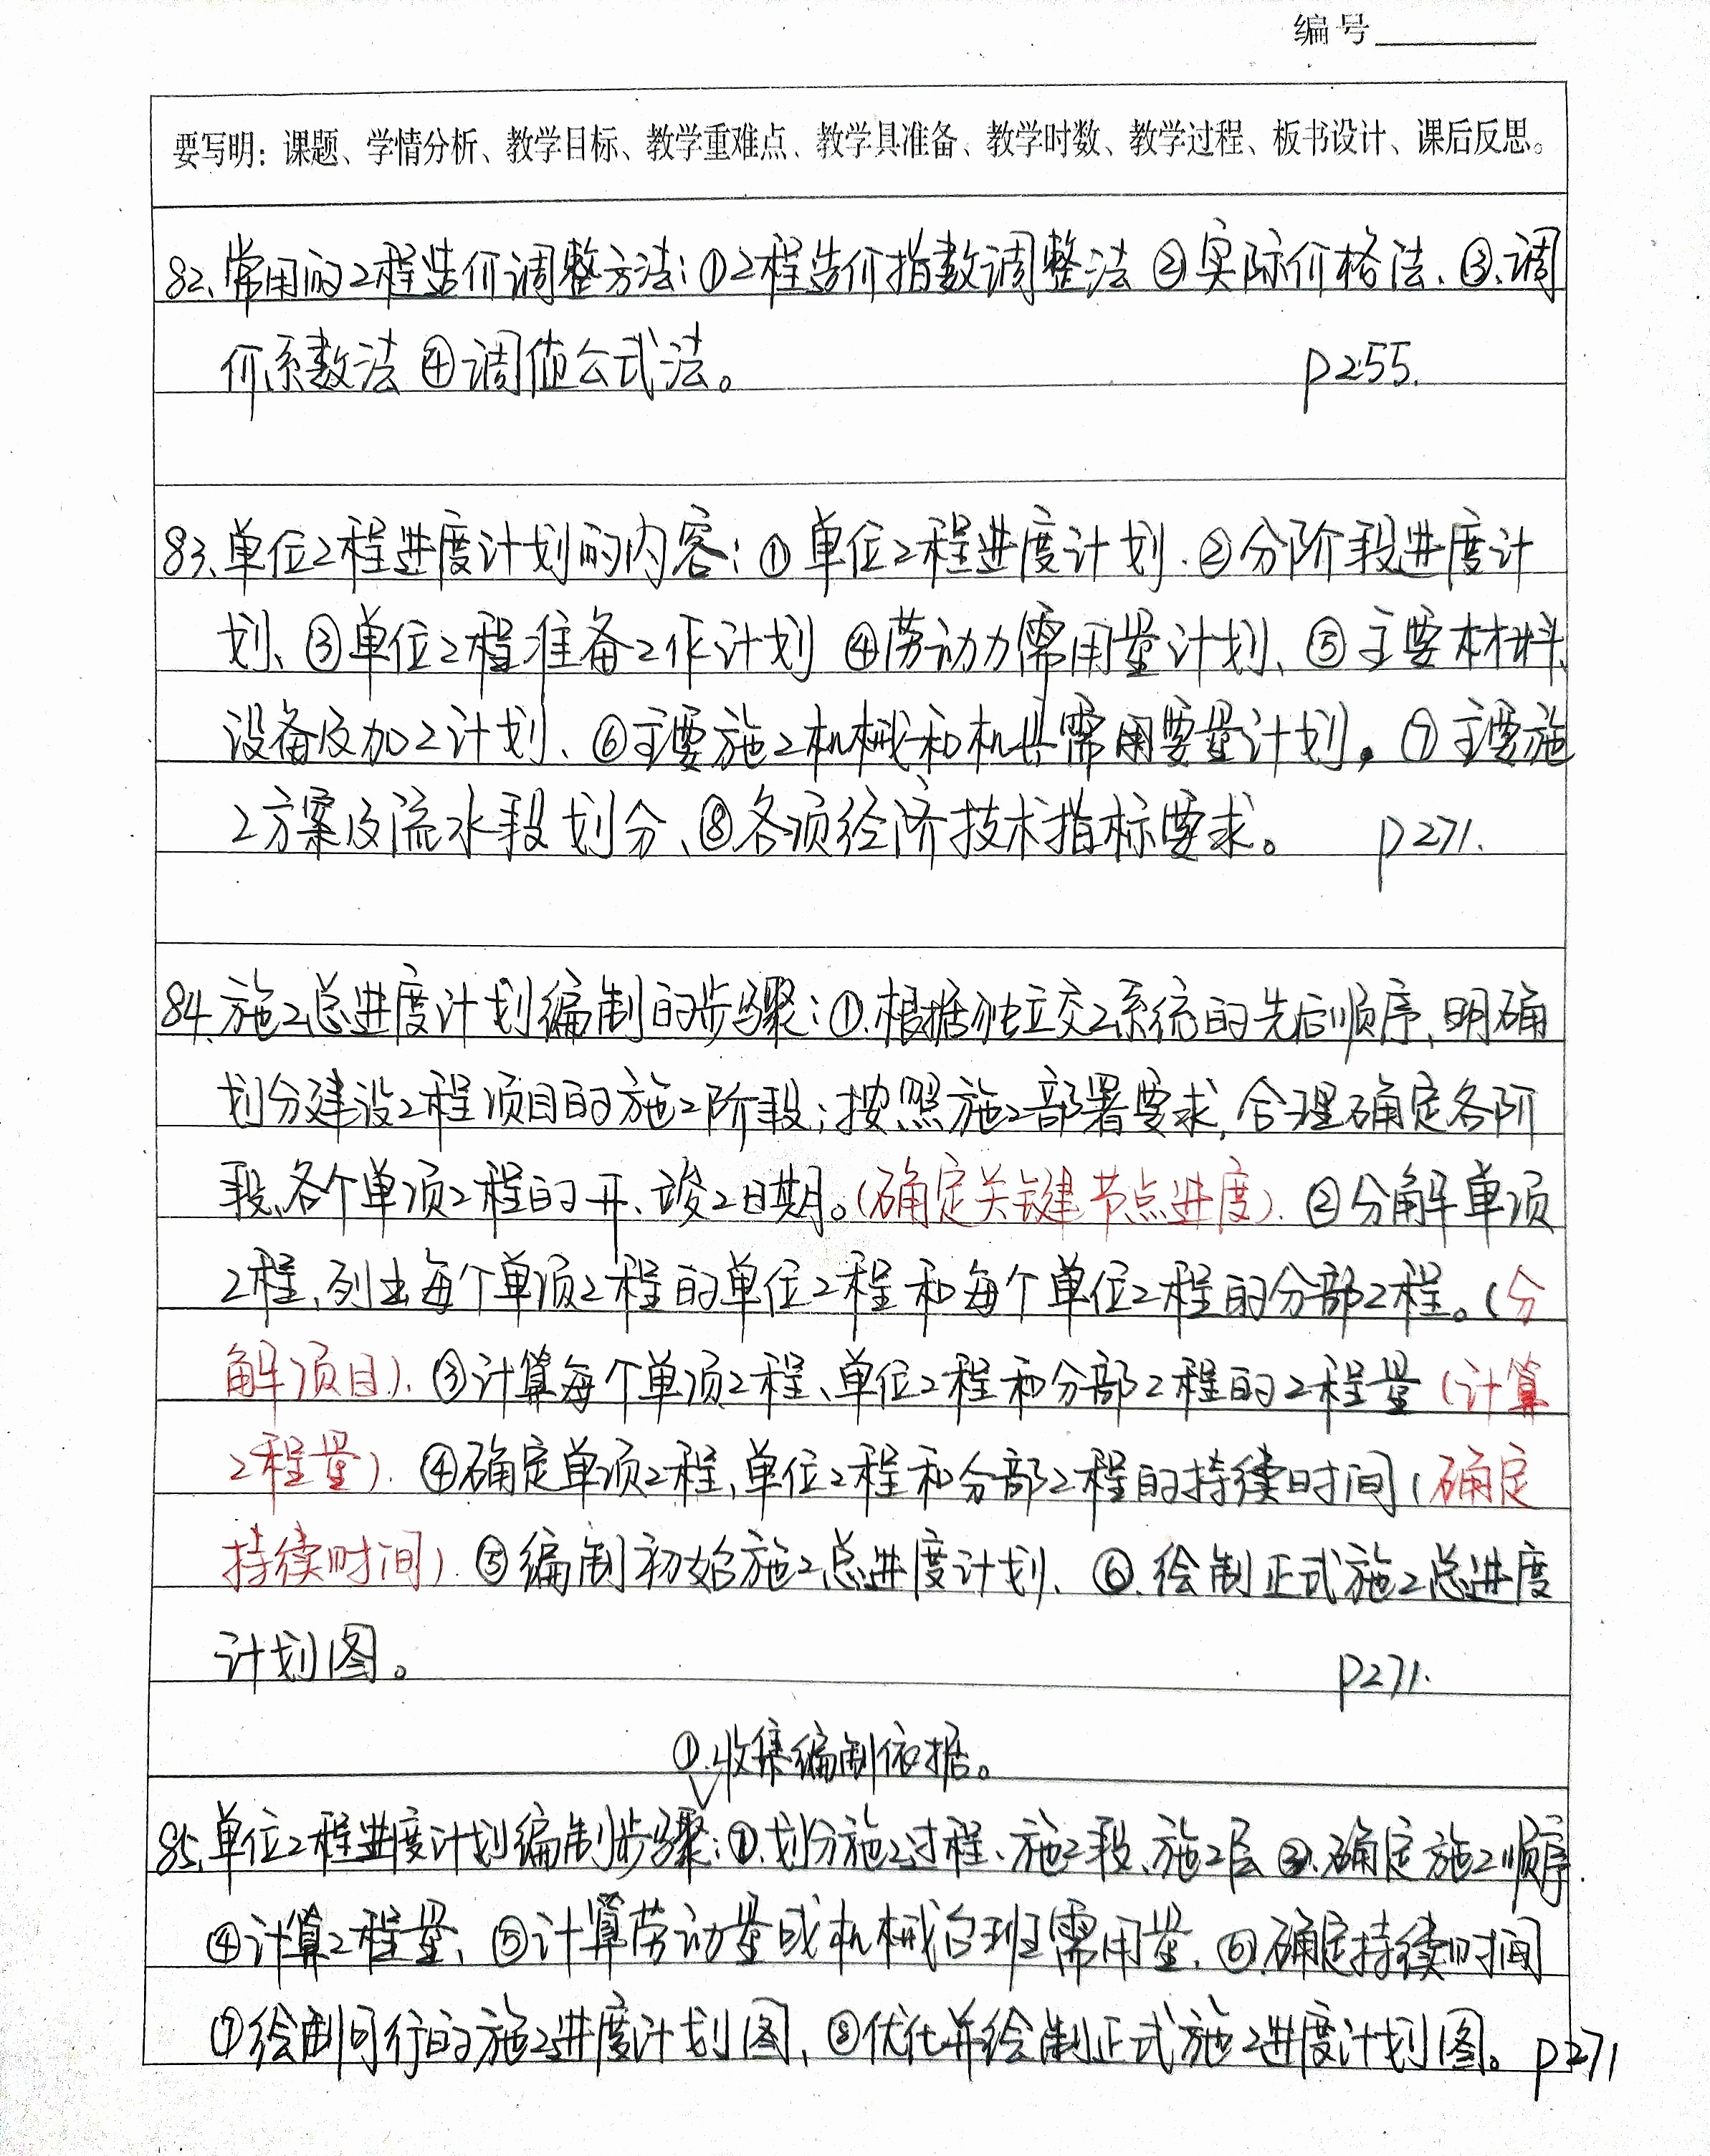 编号
要写明：课题、学情分析、教学目标、教学重难点、教学具准备、教学时数、教学过程、板书设计、课后反思。
82、常用的工程造价调整方法：①工程造价指数调整法 ②实际价格法、③、调
价系数法 ④调值公式法。 P255.
83、单位工程进度计划的内容：①单位工程进度计划、②分阶段进度计
划、③单位工程准备工作计划 ④劳动力需用量计划、⑤主要材料、
设备及加工计划、⑥主要施工机械和机具需用要量计划。⑦主要施
工方案及流水段划分、⑧各项经济技术指标要求。 P271.
84、施工总进度计划编制的步骤：①.根据独立交工系统的先后顺序，明确
划分建设工程项目的施工阶段；按照施工部署要求，合理确定各阶
段、各个单项工程的开、竣工日期。(确定关键节点进度). ②分解单项
工程，列出每个单项工程的单位工程和每个单位工程的分部工程。(分
解项目). ③计算每个单项工程、单位工程和分部工程的工程量 (计算
工程量). ④确定单项工程、单位工程和分部工程的持续时间 (确定
持续时间). ⑤编制初始施工总进度计划、⑥.绘制正式施工总进度
计划图。 P271.
①.收集编制依据。
85、单位工程进度计划编制步骤：②.划分施工过程、施工段、施工层 ③.确定施工顺序.
④计算工程量、⑤计算劳动量或机械台班需用量、⑥.确定持续时间
⑦绘制可行的施工进度计划图、⑧优化并绘制正式施工进度计划图。P271